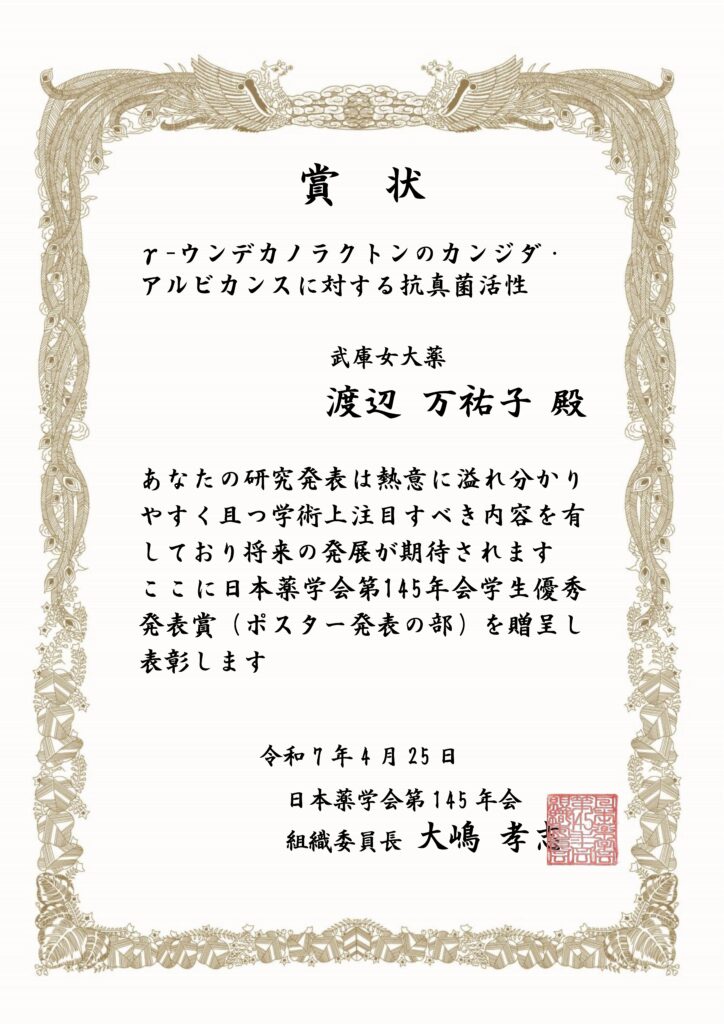 賞 状
γ-ウンデカノラクトンのカンジダ・
アルビカンスに対する抗真菌活性
武庫女大薬
渡辺 万祐子 殿
あなたの研究発表は熱意に溢れ分かり
やすく且つ学術上注目すべき内容を有
しており将来の発展が期待されます
ここに日本薬学会第145年会学生優秀
発表賞（ポスター発表の部）を贈呈し
表彰します
令和7年4月25日
日本薬学会第145年会
組織委員長 大嶋 孝志